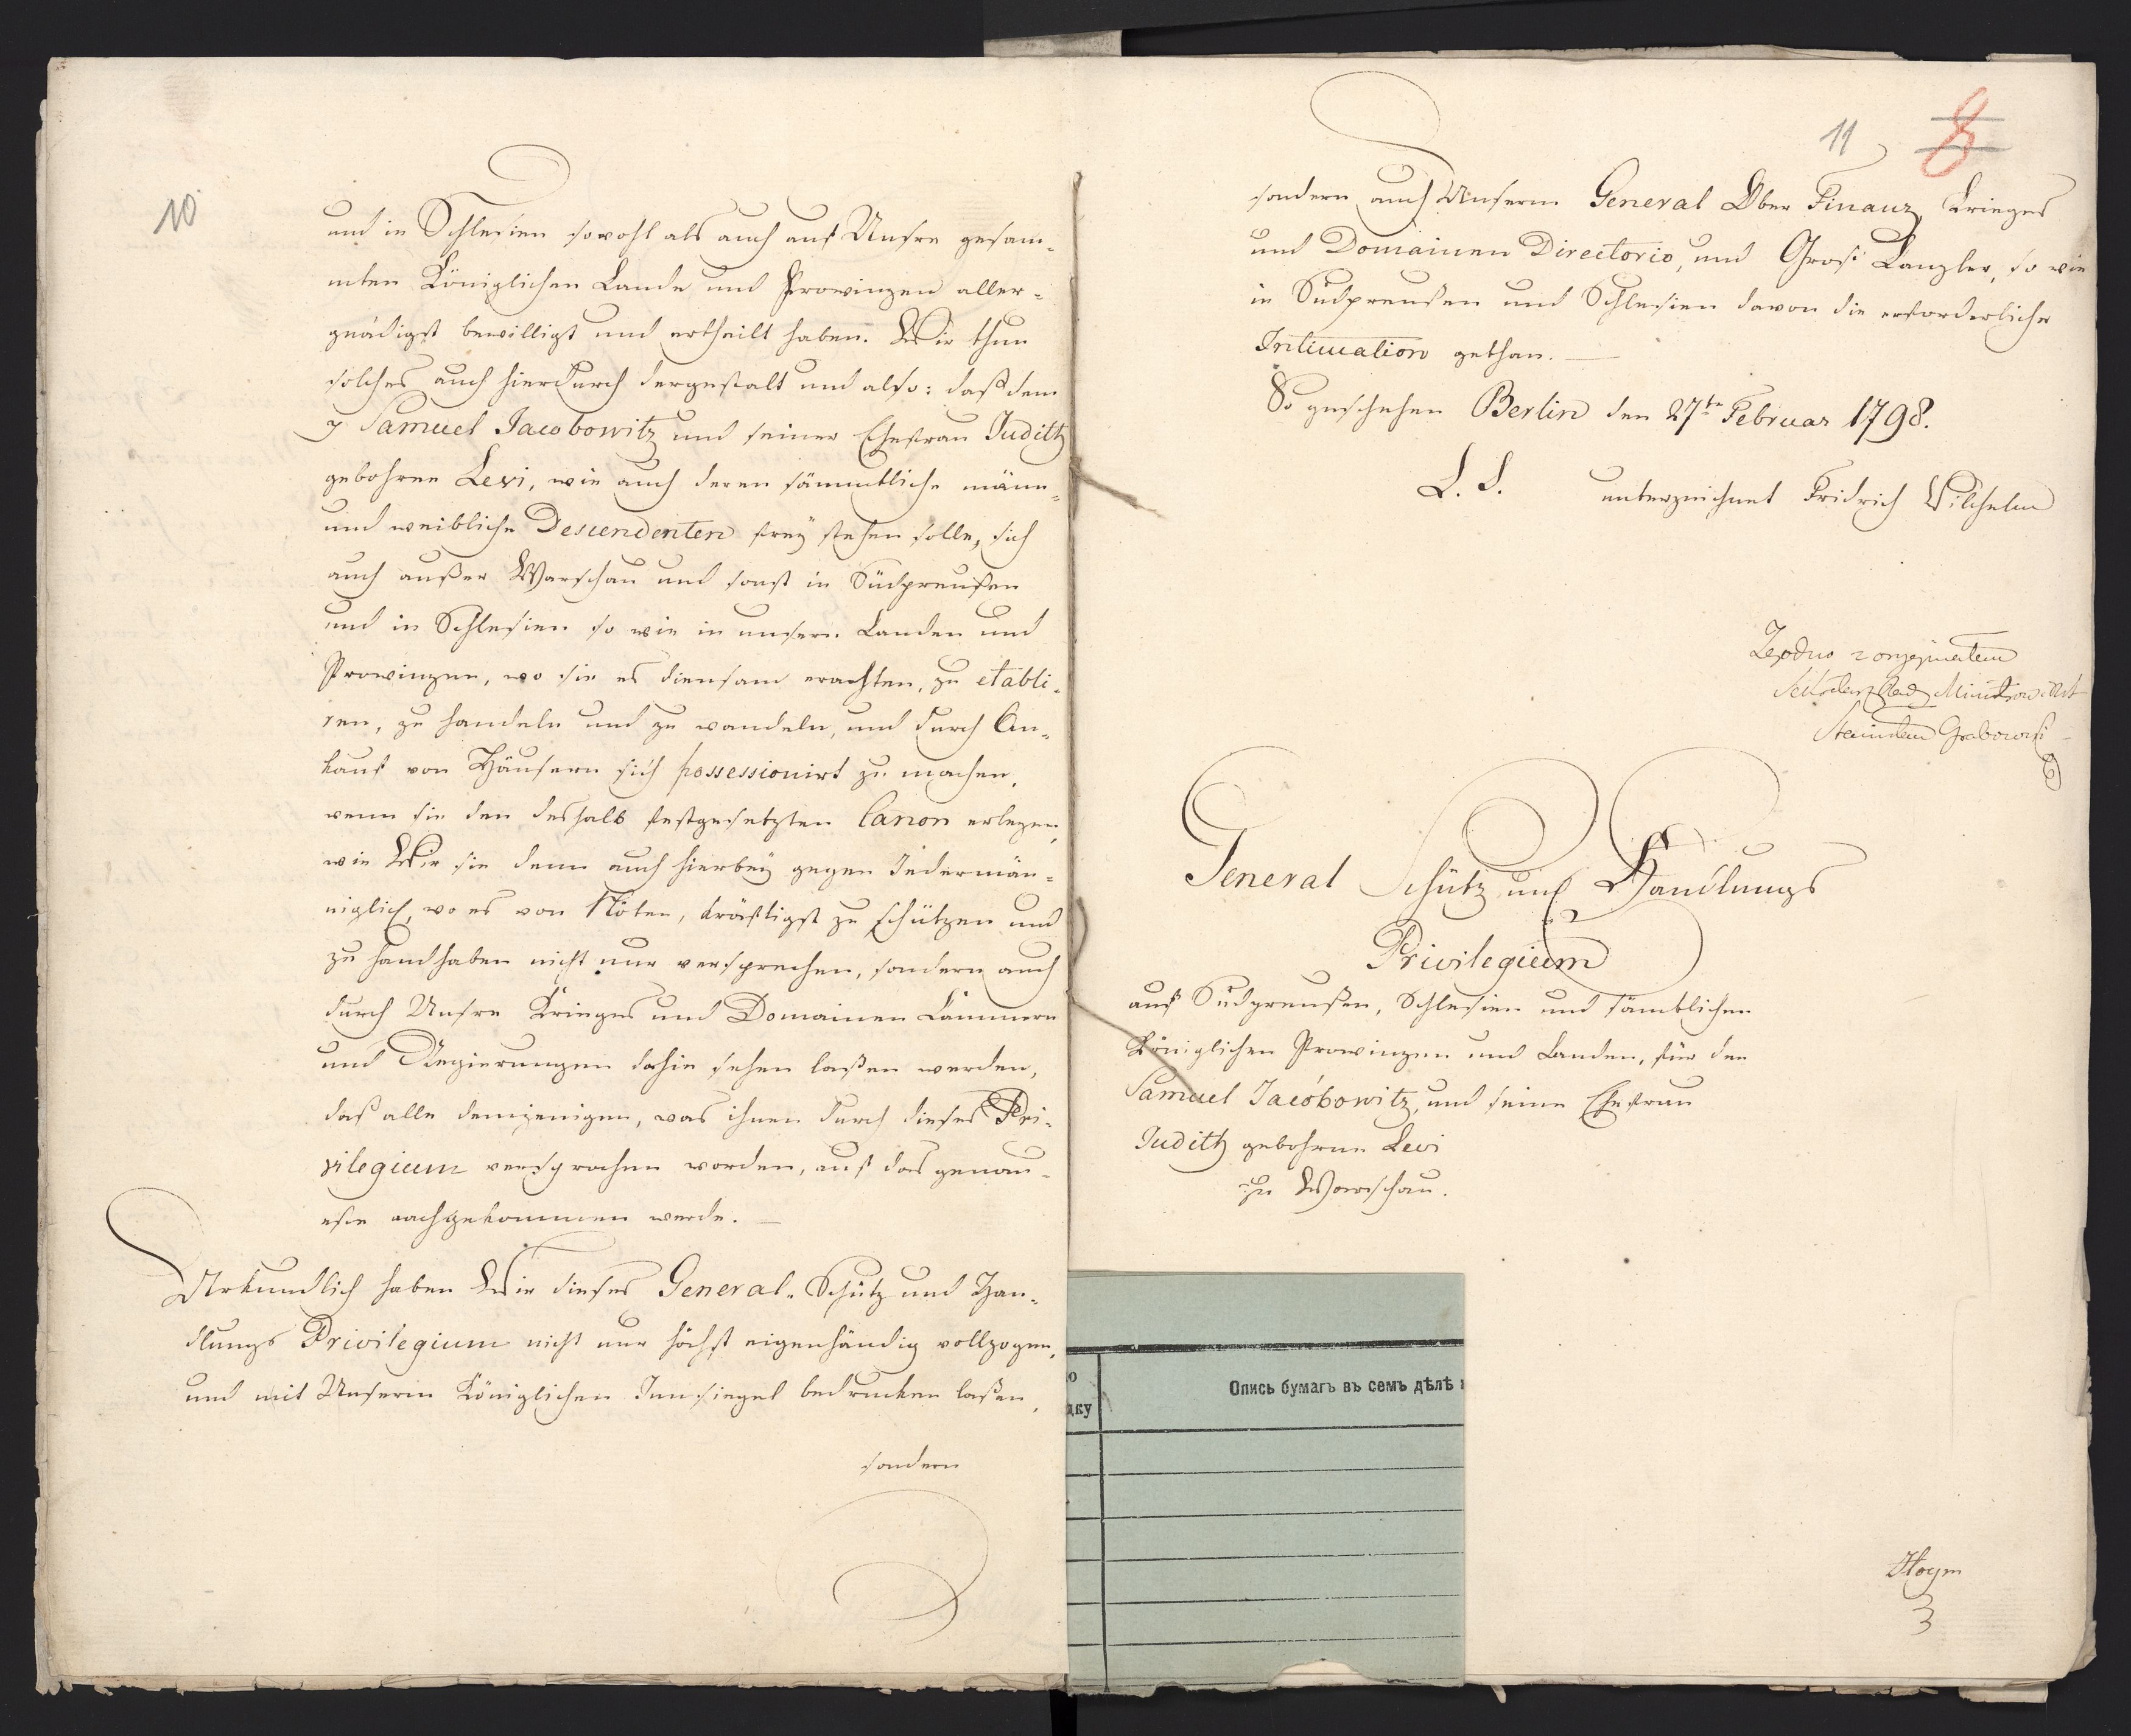 10
und in Schlesien sowohl als auch auf Unsre gesam-
mten Königlichen Lande und Provinzen aller-
gnädigst bewilligt und ertheilt haben. Wir thun
solches auch hierdurch dergestalt und also: daß dem
Samuel Jacobowitz und seiner Ehefrau Judith
gebohrne Levi, wie auch deren sämmtliche männ-
und weibliche Descendenten frey stehen solle, sich
auch außer Warschau und sonst in Südpreußen
und in Schlesien so wie in unsern Landen und
Provinzen, wo sie es diensam erachten, zu etabli-
ren, zu handeln und zu wandeln, und durch An-
kauf von Häusern sich possessionirt zu machen,
wenn sie den deshalb festgesetzten Canon erlegen,
wie Wir sie denn auch hierbey gegen Jedermän-
niglich, wo es von Nöten, kräftigst zu schützen und
zu handhaben nicht nur versprechen, sondern auch
durch Unsre Krieges und Domainen Cammern
und Regierungen dahin sehen laßen werden,
daß alle demjenigen, was ihnen durch dieses Pri-
vilegium versprochen worden, auf das genau-
este nachgekommen werde. —
Urkundlich haben Wir dieses General-Schutz und Han-
dlungs Privilegium nicht nur höchst eigenhändig vollzogen,
und mit Unserm Königlichen Innsiegel bedrucken laßen,
sondern
11 8
sondern auch Unserm General Ober Finanz, Krieges
und Domainen Directorio, und Groß Canzler, so wie
in Südpreußen und Schlesien davon die erforderliche
Intimation gethan. —
So geschehen Berlin den 27te Februar 1798.
L. S. unterzeichnet Fridrich Wilhelm
Zgodno z oryginałem
Grabowski
General Schutz und Handlungs
Privilegium
auf Südpreußen, Schlesien und sämtlichen
Königlichen Provinzen und Landen, für den
Samuel Jacobowitz, und seine Ehefrau
Judith gebohrne Levi
zu Warschau.
Опись бумагъ въ семъ дѣлѣ
Hoym